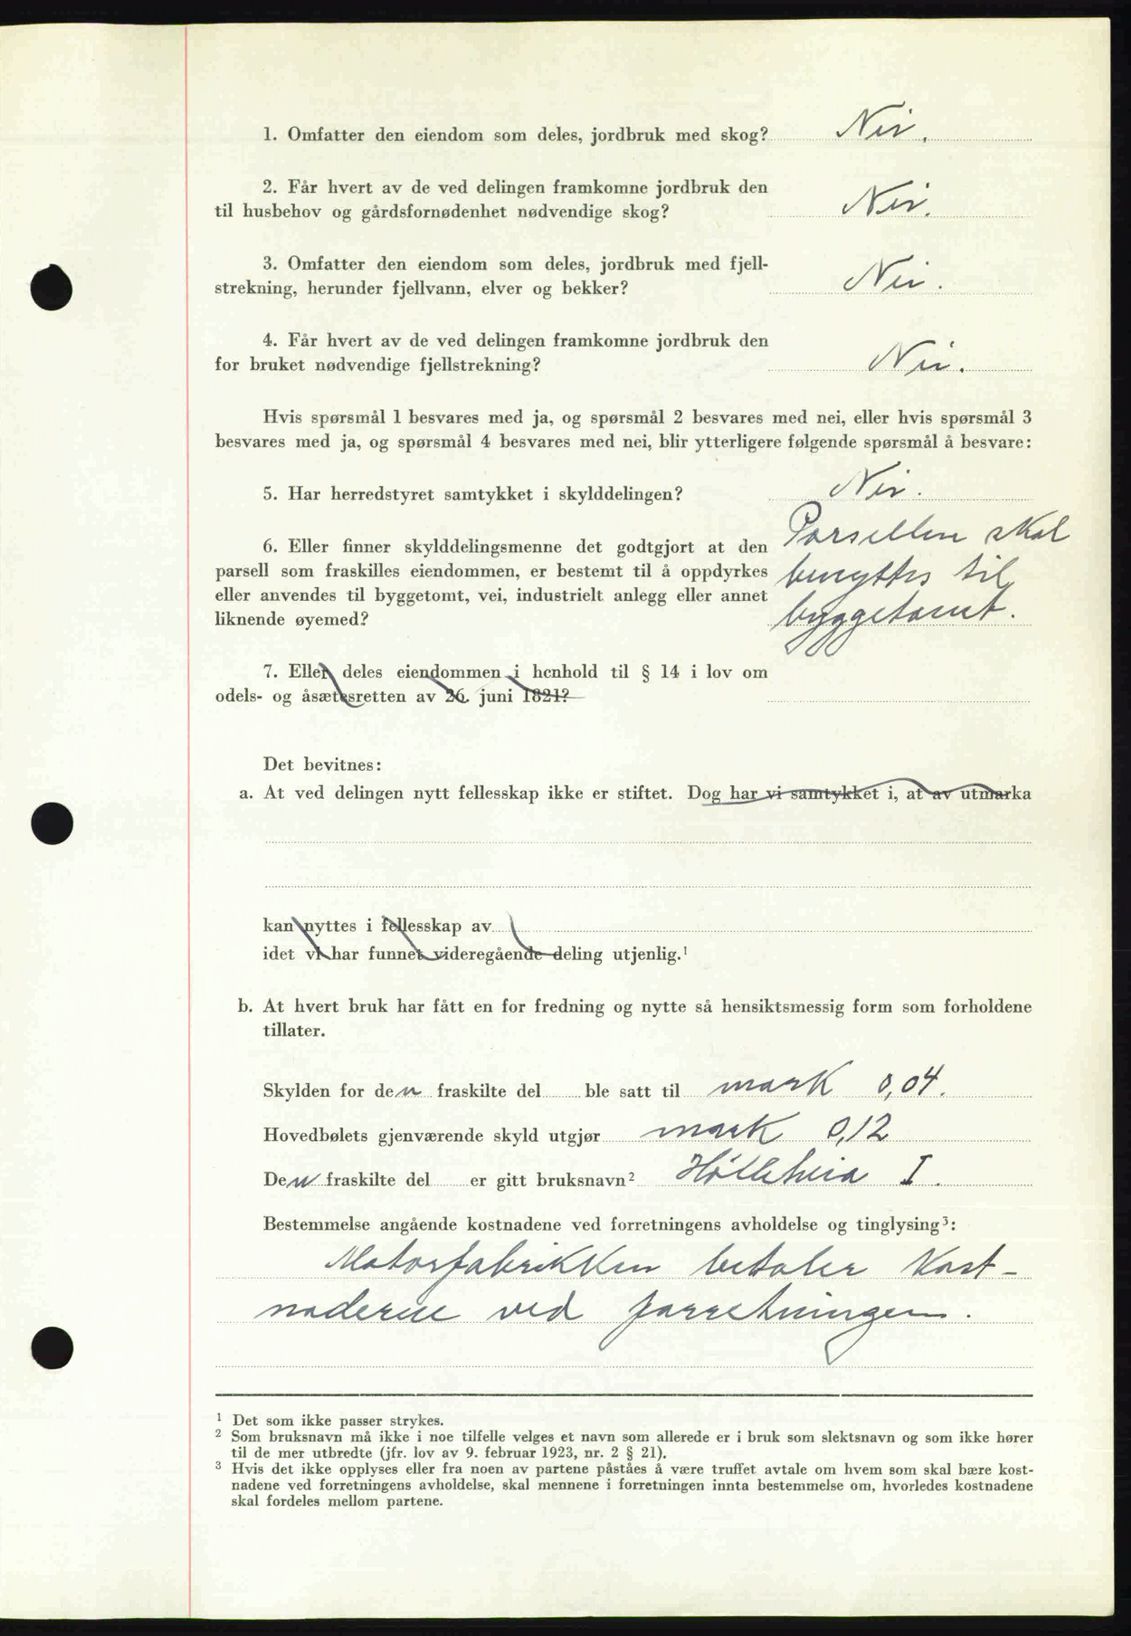 1. Omfatter den eiendom som deles, jordbruk med skog? Nei.
2. Får hvert av de ved delingen framkomne jordbruk den
til husbehov og gårdsfornødenhet nødvendige skog? Nei.
3. Omfatter den eiendom som deles, jordbruk med fjell-
strekning, herunder fjellvann, elver og bekker? Nei.
4. Får hvert av de ved delingen framkomne jordbruk den
for bruket nødvendige fjellstrekning? Nei.
Hvis spørsmål 1 besvares med ja, og spørsmål 2 besvares med nei, eller hvis spørsmål 3
besvares med ja, og spørsmål 4 besvares med nei, blir ytterligere følgende spørsmål å besvare:
5. Har herredstyret samtykket i skylddelingen? Nei.
6. Eller finner skylddelingsmenne det godtgjort at den Parsellen skal
parsell som fraskilles eiendommen, er bestemt til å oppdyrkes benyttes til
eller anvendes til byggetomt, vei, industrielt anlegg eller annet byggetomt.
liknende øyemed?
7. Eller deles eiendommen i henhold til § 14 i lov om
odels- og åsætesretten av 26. juni 1821?
Det bevitnes:
a. At ved delingen nytt fellesskap ikke er stiftet. Dog har vi samtykket i, at av utmarka
kan nyttes i fellesskap av
idet vi har funnet videregående deling utjenlig.¹
b. At hvert bruk har fått en for fredning og nytte så hensiktsmessig form som forholdene
tillater.
Skylden for den fraskilte del ble satt til mark 0,04.
Hovedbølets gjenværende skyld utgjør mark 0,12
Den fraskilte del er gitt bruksnavn² Hølleheia I.
Bestemmelse angående kostnadene ved forretningens avholdelse og tinglysing³:
Motorfabrikken betaler kost-
nadene ved forretningen.
¹ Det som ikke passer strykes.
² Som bruksnavn må ikke i noe tilfelle velges et navn som allerede er i bruk som slektsnavn og som ikke hører
til de mer utbredte (jfr. lov av 9. februar 1923, nr. 2 § 21).
³ Hvis det ikke opplyses eller fra noen av partene påståes å være truffet avtale om hvem som skal bære kost-
nadene ved forretningens avholdelse, skal mennene i forretningen innta bestemmelse om, hvorledes kostnadene
skal fordeles mellom partene.